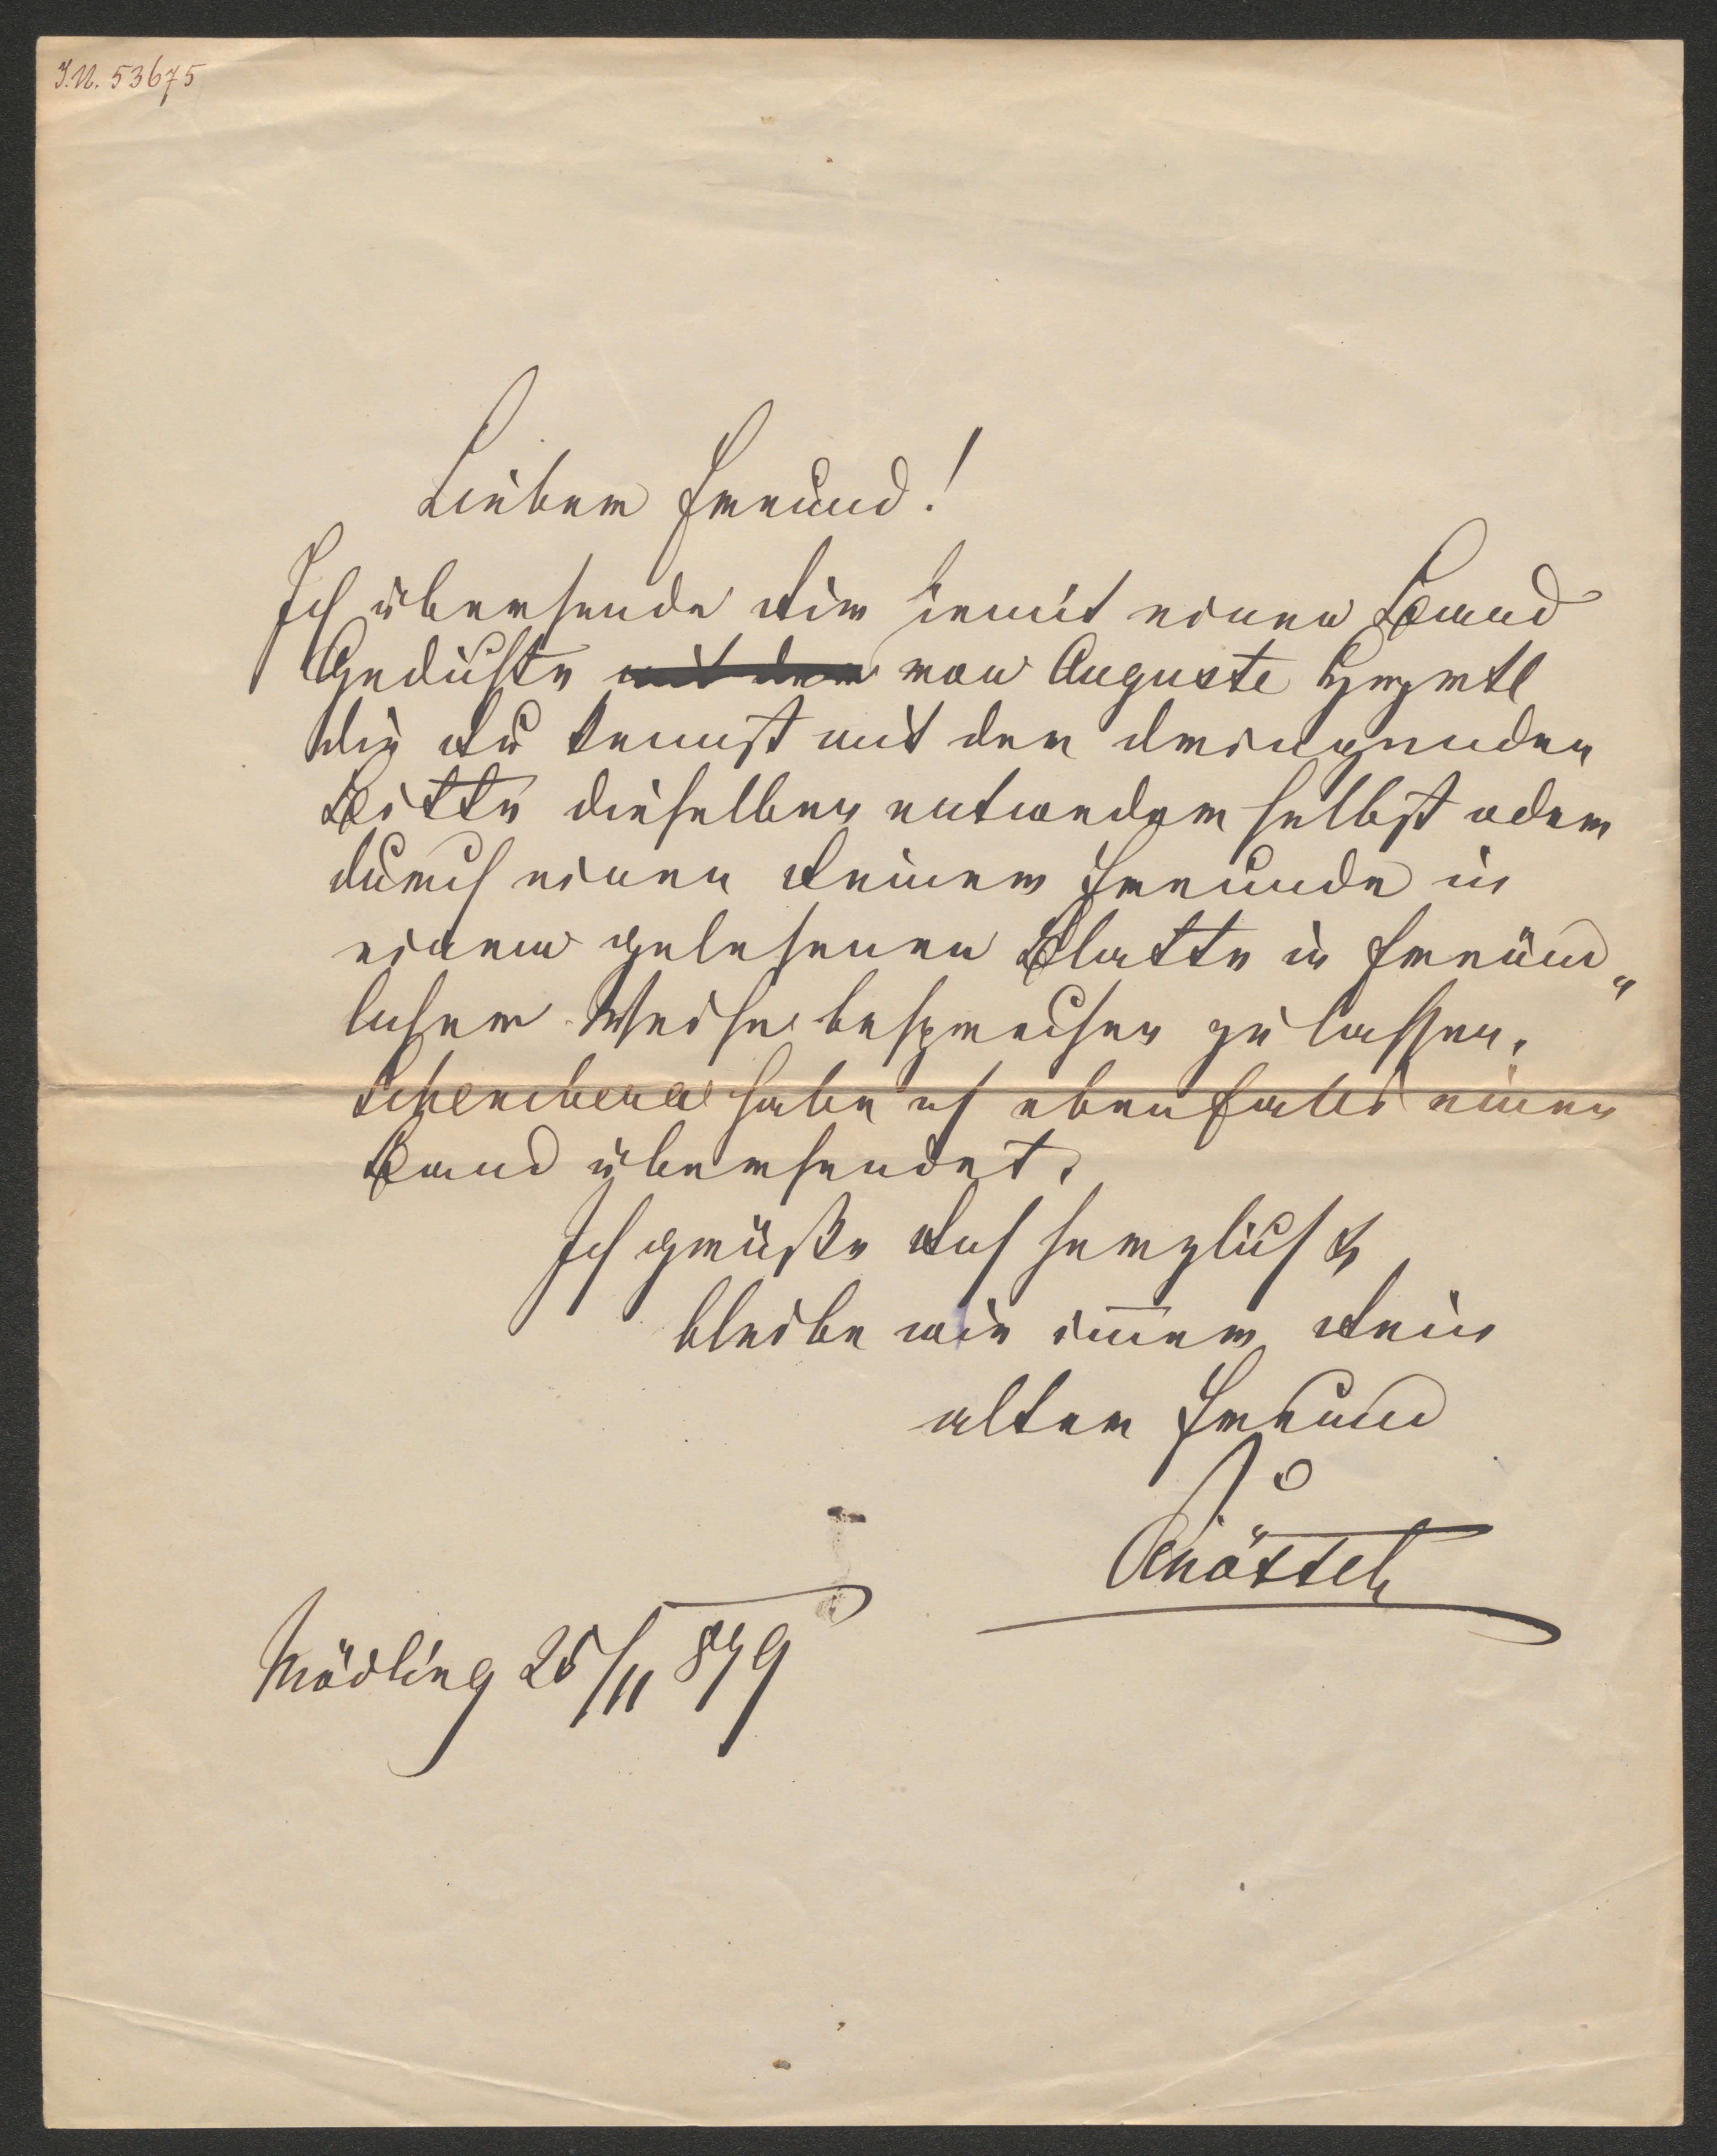 I.N. 53675
Lieber Freund!
Ich übersende Dir hiemit einen Band
Gedichte mit der von Auguste
die Du kennst mit der dringenden
Bitte dieselben entweder selbst oder
durch einen Deiner Freunde in
einem gelesenen Blatte in freund„
licher Weise besprechen zu lassen.
habe ich ebenfalls einen
Band übersendet.
Ich grüße Dich herzlich &
bleibe wie immer Dein
alter Freund
Mödling 25/11 879